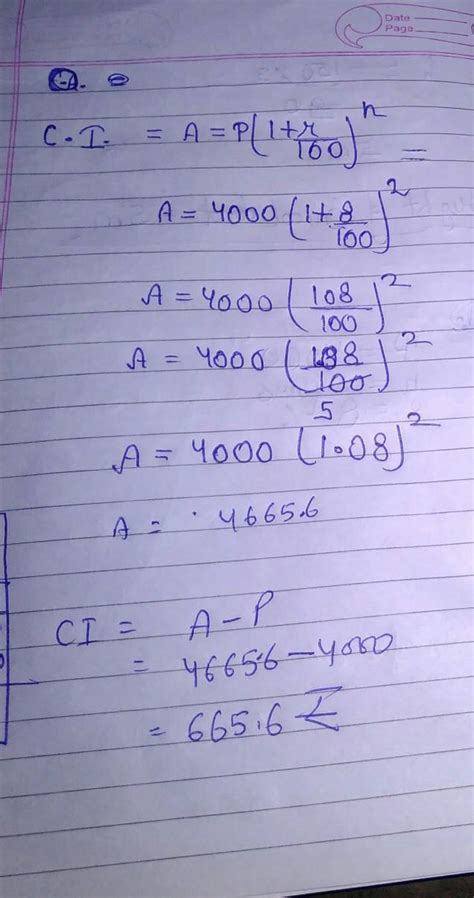 Date
Page
C.I. = A = P(1+r/100)^n =
A = 4000 (1+8/100)^2
A = 4000 (108/100)^2
A = 4000 (108/100)^2
5
A = 4000 (1.08)^2
A = 4665.6
CI = A - P
= 4665.6 - 4000
= 665.6